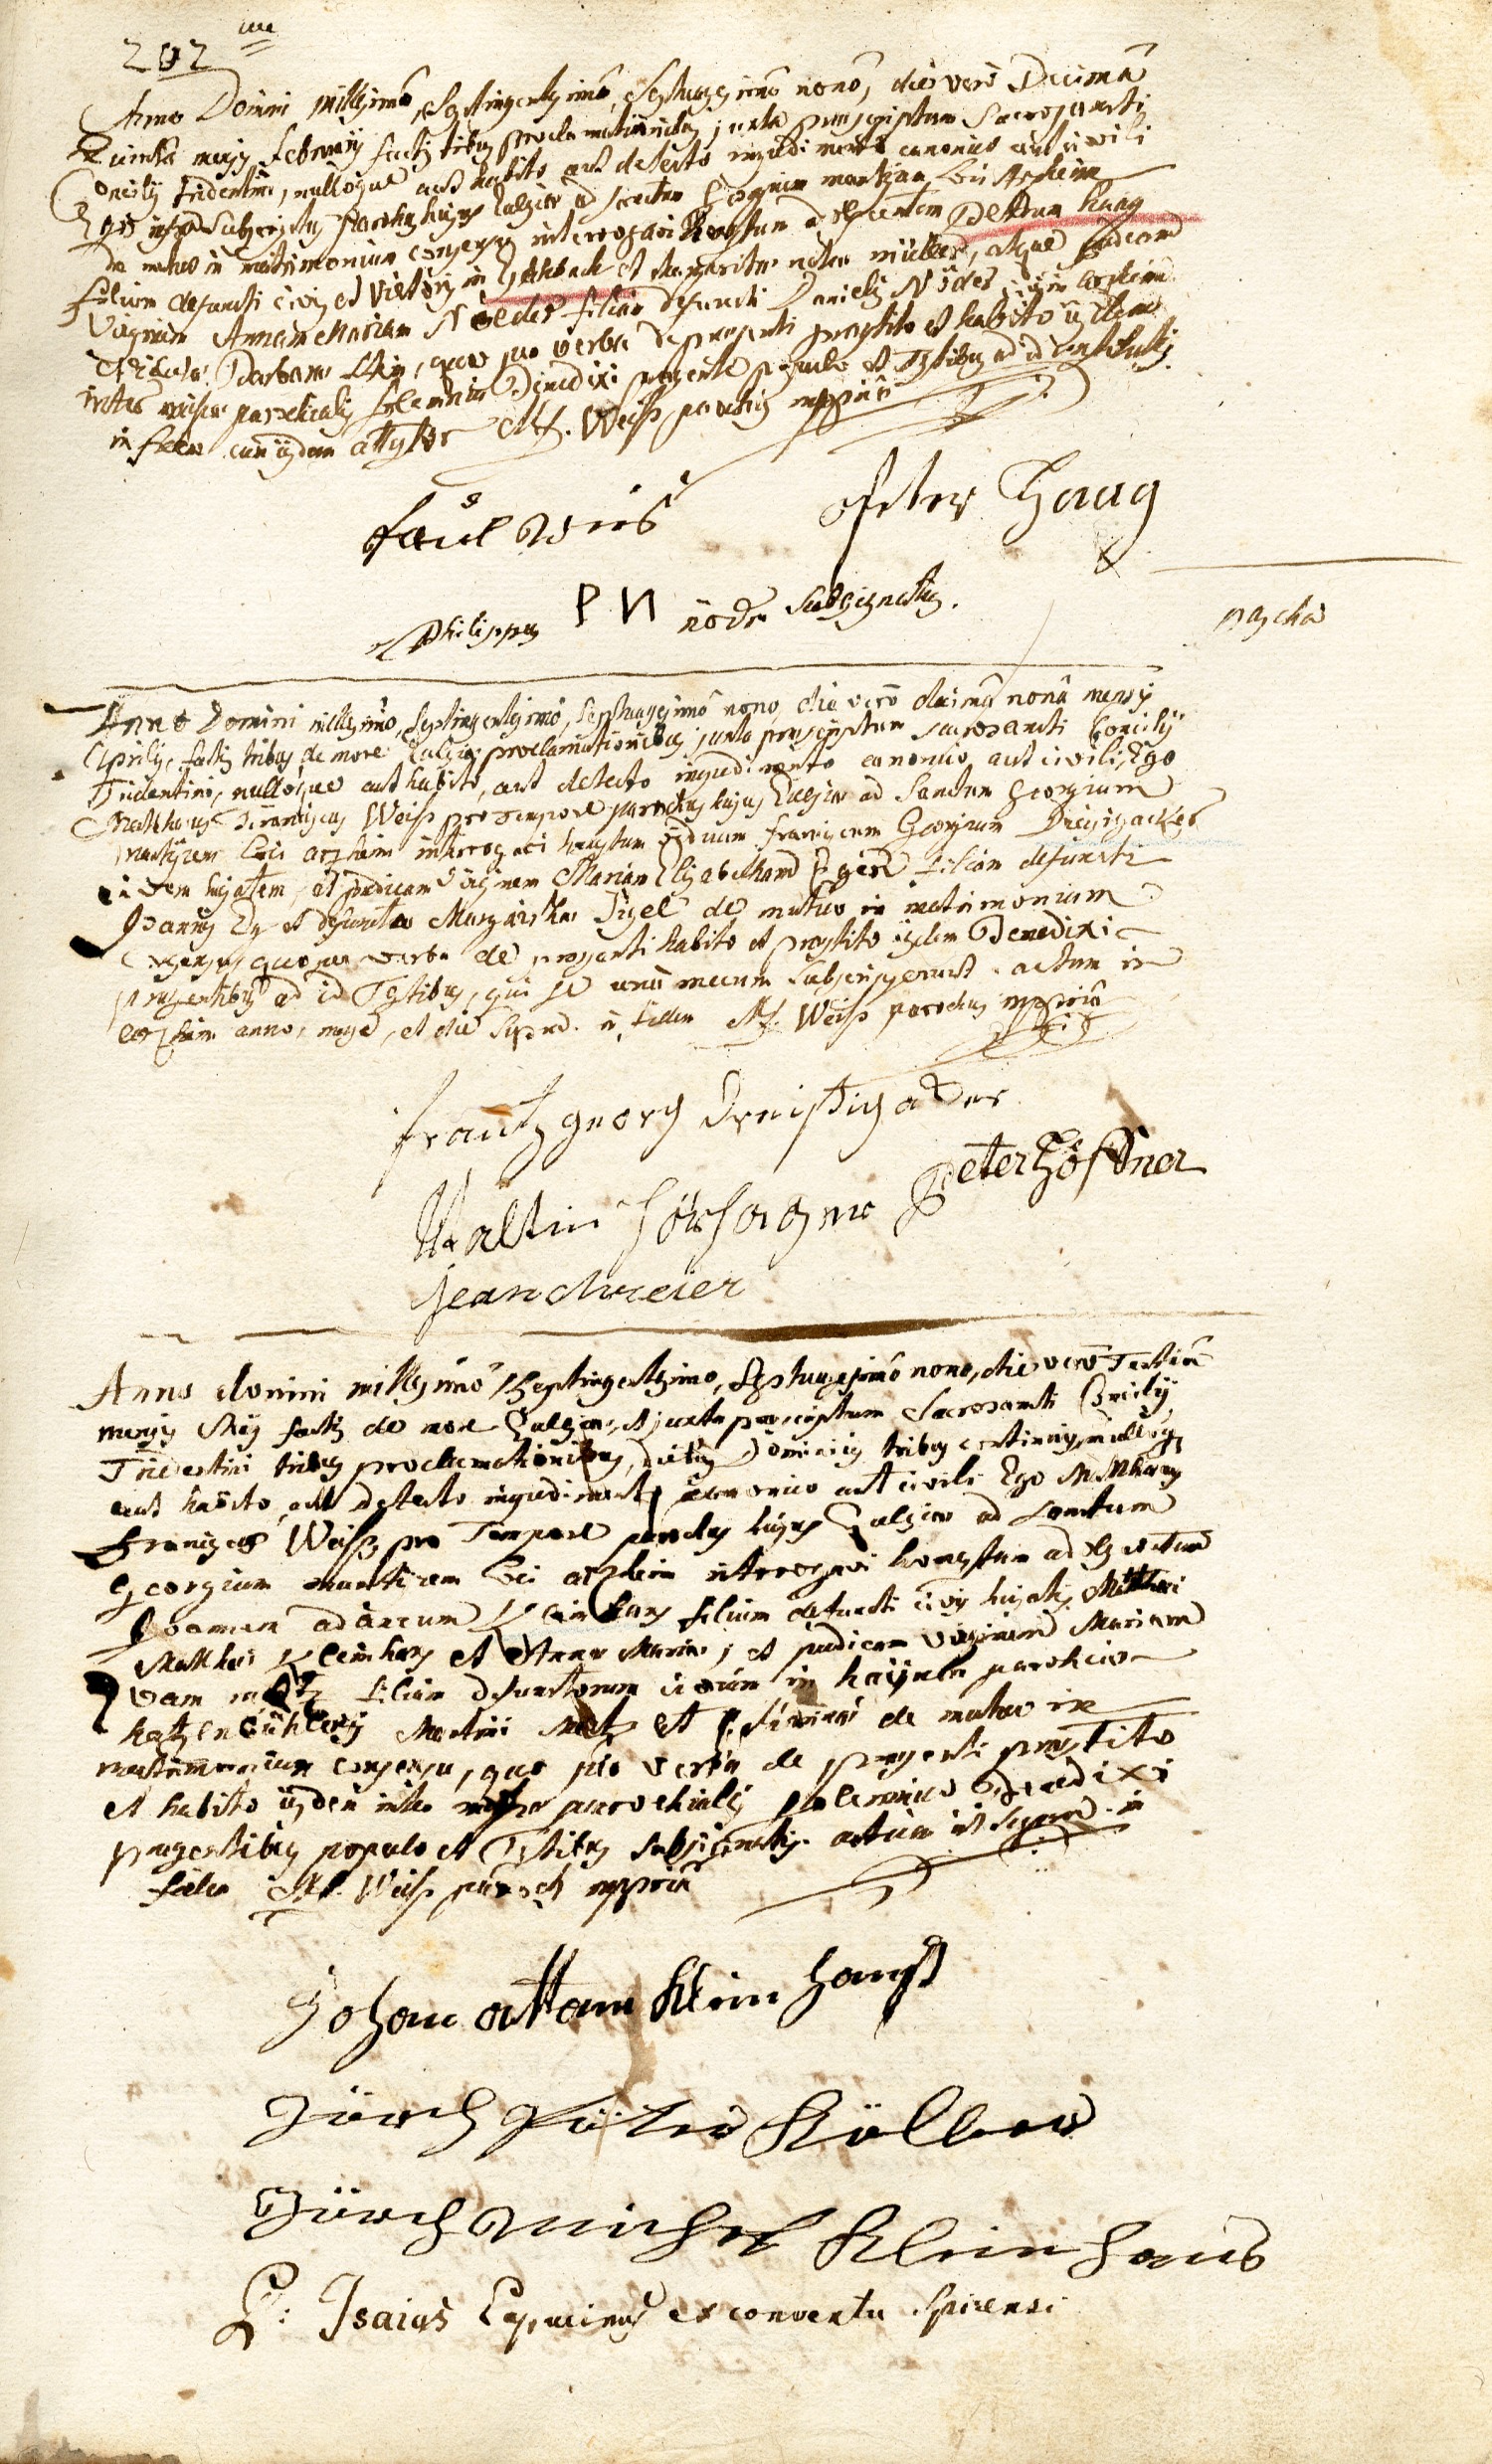 202 mo
Anno Domini millesimo, septingentesimo, septuagesimo nono, die vero Decima
Quinta mensis February factis tribus proclamationibus juxta præscriptum Sacrosancti
Concilij Tridentini, nulloque aut habito aut detecto impedimento canonico aut civili
Ego infra Subscriptus parochus hujus Ecclesiæ ad sanctum Georgium martyrem loci Arzheim
de mutuo in matrimonium consensu interrogavi Honestum adolescentem Petrum Haag
filium defuncti civis et Victoris in Eschbach et Margaritæ natæ müller, atque pudicam
Virginem Annam Mariam Nöeder filiam defuncti Danielis Nöder civis in Arzheim
et Barbaræ, quo per verba de præsenti præstito et habito ijsdem
inter missæ parochialis solemnia Benedixi præsente populo et Testibus ad id
in fidem cum ijsdem attestor M. F. Weiss parochus mppriâ
Paul Weis Peter Haag
Philippus P N nöder Subsignatus.
pascha
Anno Domini millesimo, septingentesimo, septuagesimo nono, die vero decima nona mensis
Aprilis, factis tribus de more Ecclesiæ proclamationibus juxta præscriptum sacrosancti Concilij
Tridentini, nulloque aut habito, aut detecto impedimento canonico aut civili, Ego
Matthæus Franciscus Weiss pro Tempore parochus hujus Ecclesiæ ad Sanctum Georgium
martijrem loci arzheim interrogavi honestum viduum Franciscum Georgium Dreisigacker
civem hujatem, et pudicam virginem Mariam Elisabetham Eger filiam defuncti
Joannis et defunctæ Margarithæ Sigel de mutuo in matrimonium
consensu, quo per verba de præsenti habito et præstito ijsdem Benedixi
præsentibus ad id Testibus, qui se unâ mecum subscripserunt. actum in
arzheim anno, mense, et die Suprad. in fidem M. F. Weiss parochus mppriâ
frantz georg dreistigacker
Valtin Peter Höffner
Jean Meier
Anno domini millesimo septingentesimo, septuagesimo nono, die vero Tertia
mensis Maij factis de more Ecclesiæ, et juxta præscriptum Sacrosancti Concilij
Tridentini tribus proclamationibus, diebus Dominicis tribus continuis, nulloque
aut habito, aut detecto impedimento canonico aut civili Ego Matthæus
Franciscus Weiss pro Tempore parochus hujus Ecclesiæ ad sanctum
Georgium martirem loci arzheim interrogavi honestum adolescentem
Joannem adamum Kleinhans filium defuncti civis hujatis
Matthæi Kleinhans et Annæ Mariæ, et pudicam virginem Mariam
Evam filiam defunctorum civium in hayna parochiæ
Martini et de mutuo in
matrimonium consensu, quo per verba de præsenti præstito
et habito ijsdem inter missæ parochialis solemnia Benedixi
præsentibus populo et Testibus subsignatis. actum ut supra. in
fidem M. F. Weiss paroch mppriâ
Johan attam Klein hanst
Jörch Päter Köller
Jörch Michel Kleinhans
P: Isaias Capucinus ex conventu Spirensi